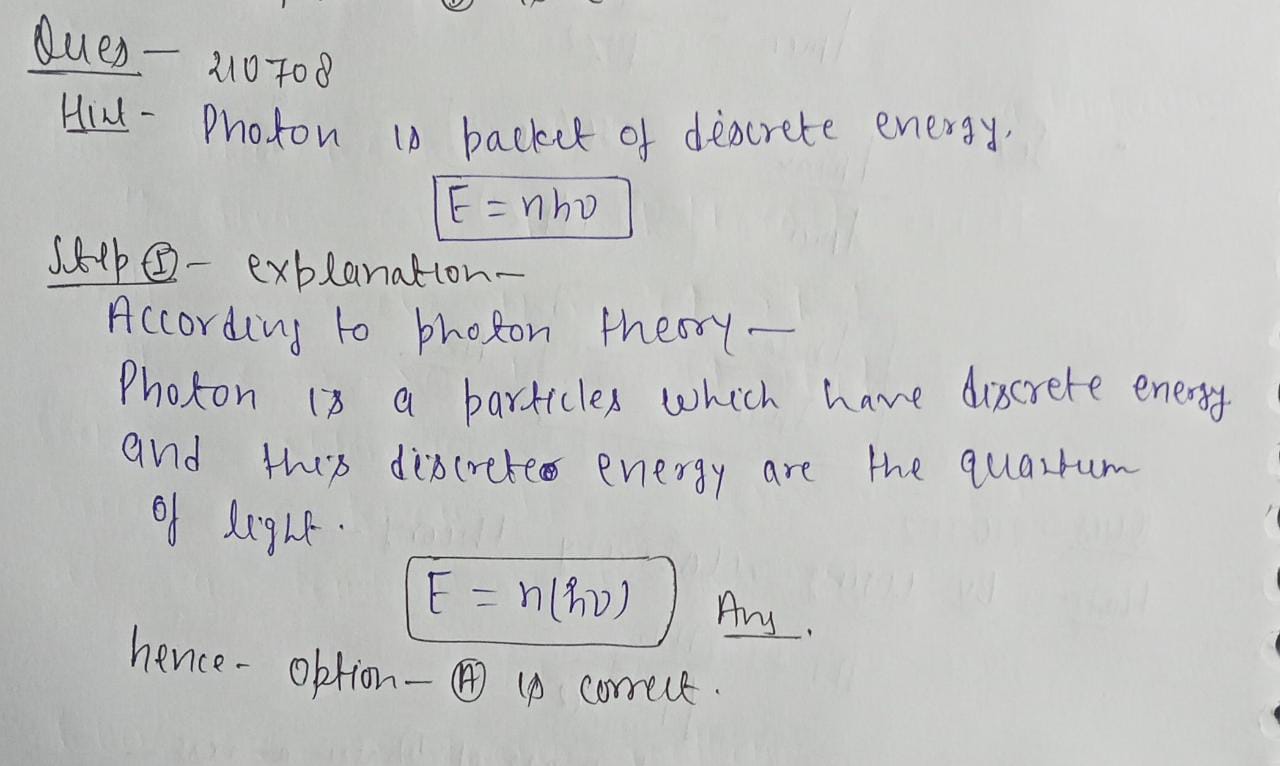 Ques - 210708
Hint - Photon is packet of discrete energy.
E = nhν
Step ① - explanation -
According to photon theory -
Photon is a particles which have discrete energy
and this discretes energy are the quantum
of light.
E = n(hν) Ans.
hence - option - Ⓐ is correct.